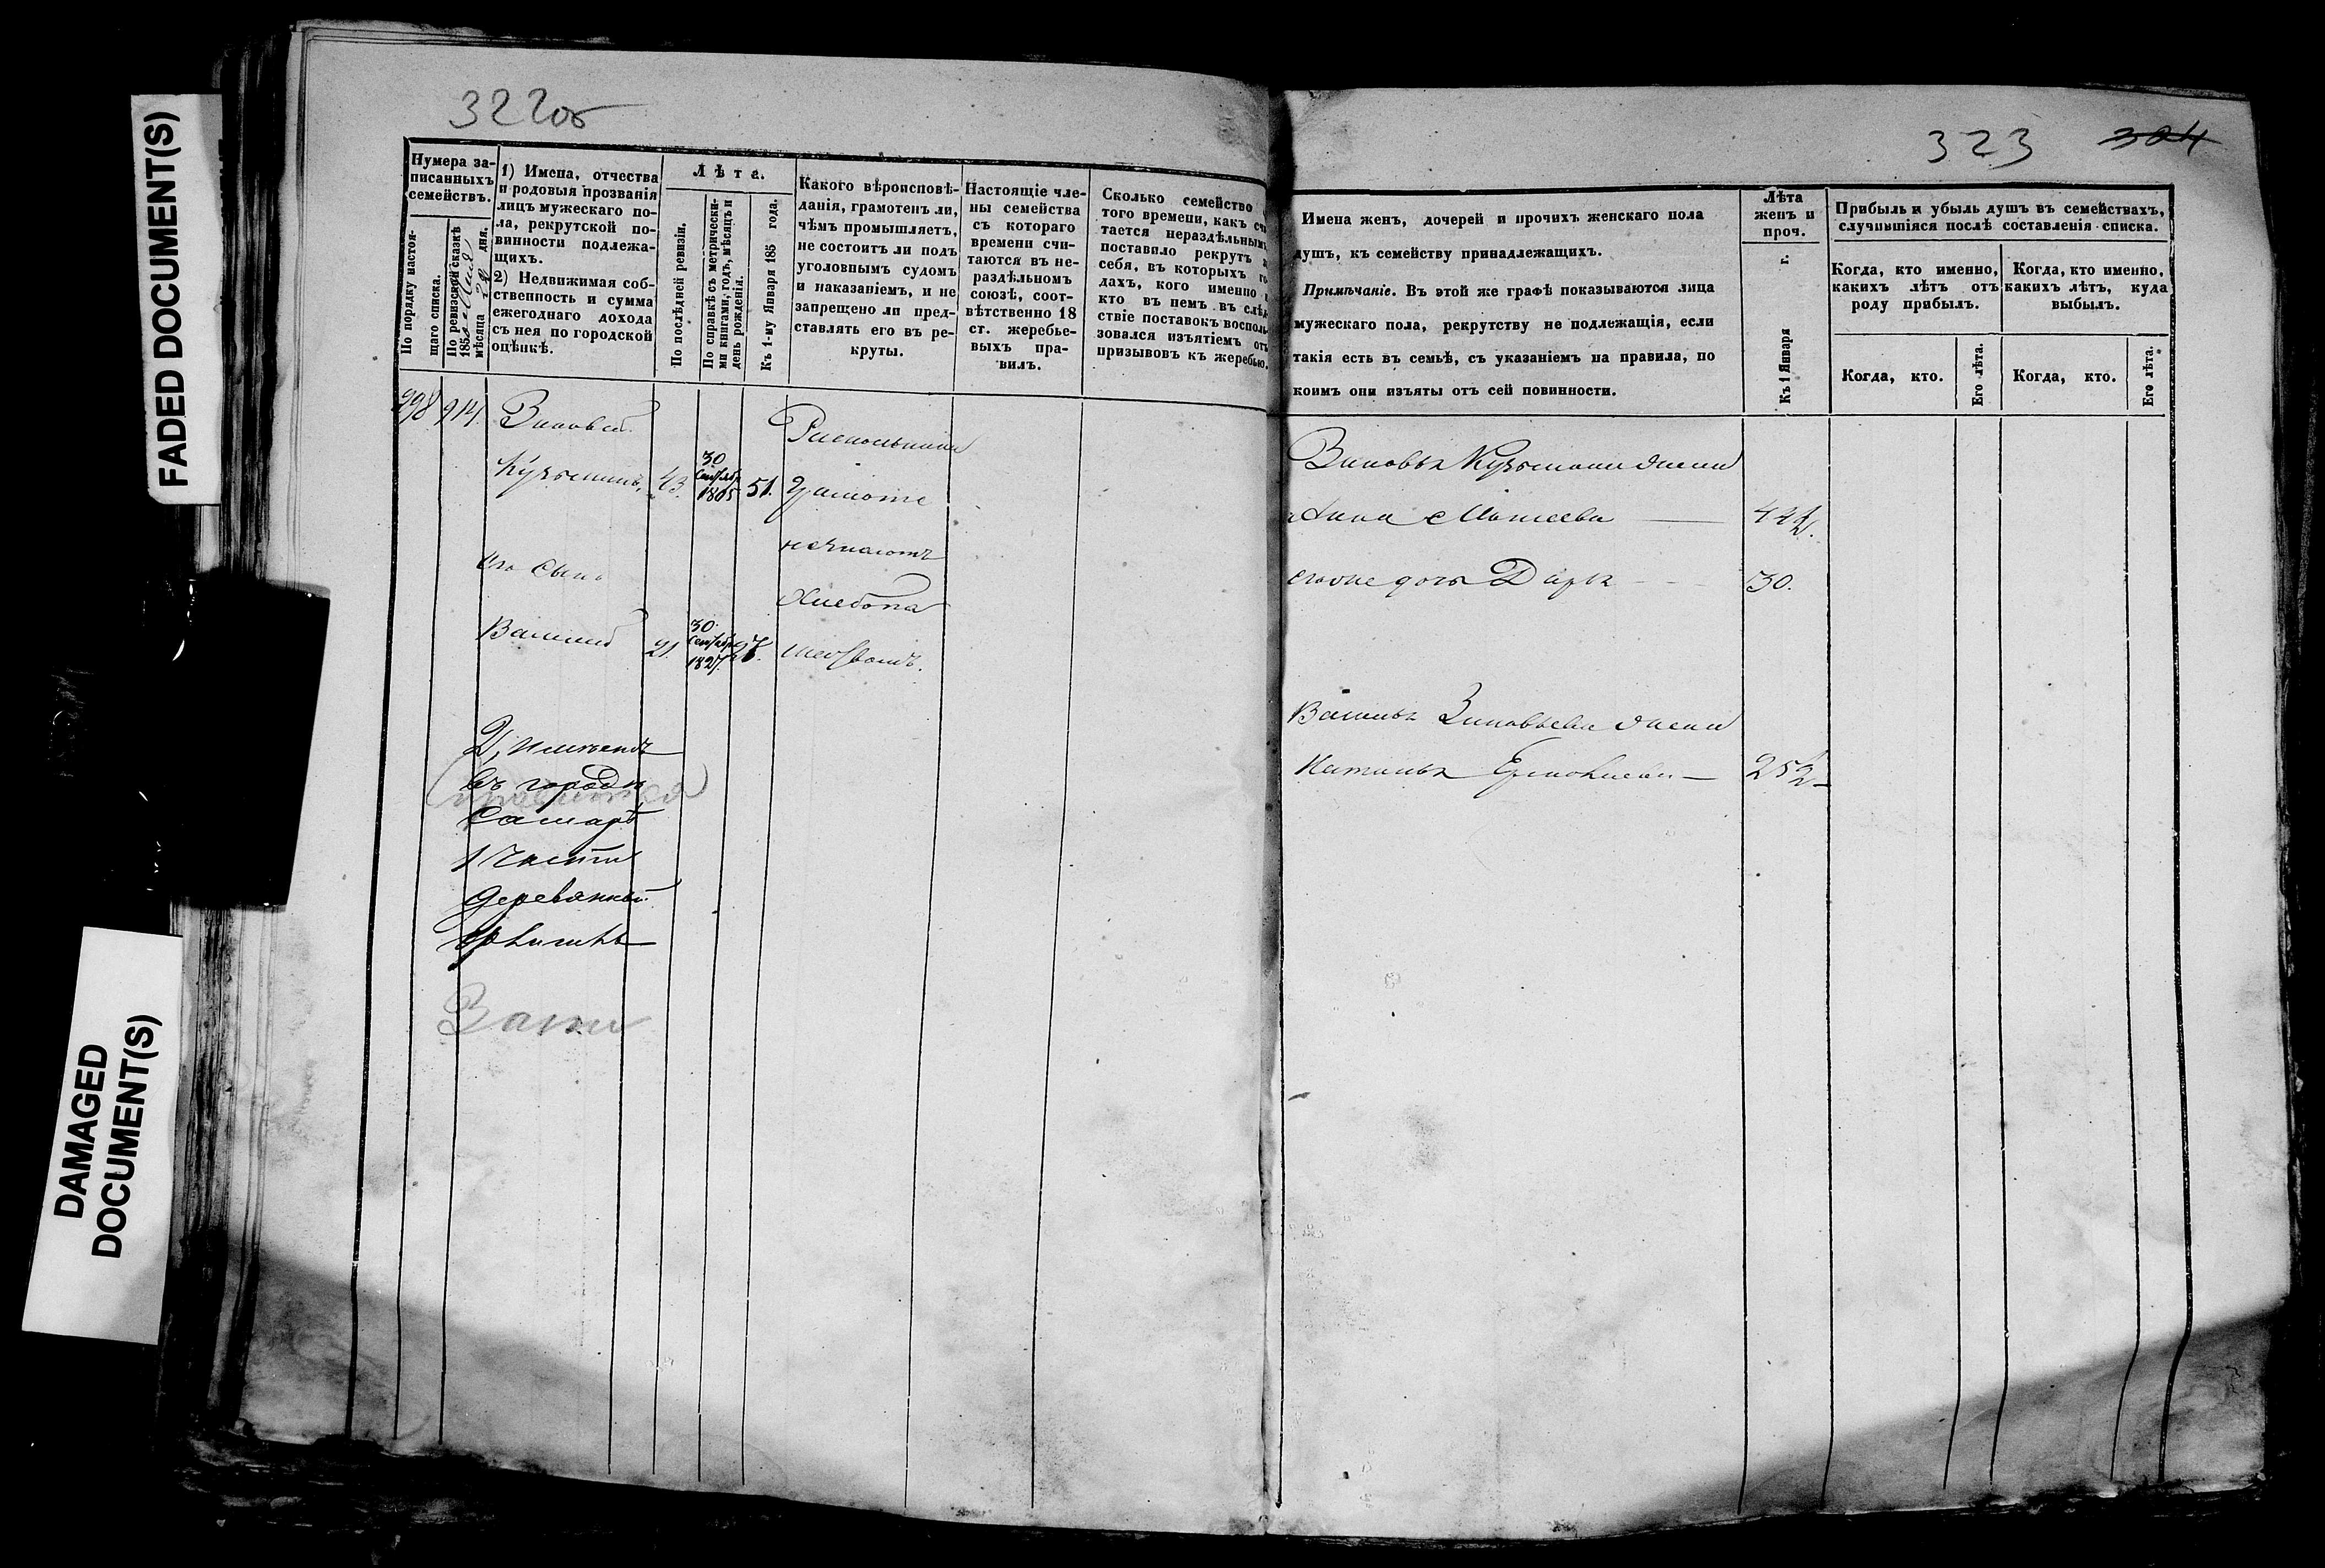 FADED DOCUMENT(S)
DAMAGED
DOCUMENT(S)
322об
Нумера за-
писанныхъ
семействъ.
По порядку настоя-
щаго списка.
По ревизской сказкѣ
185 мѣсяца дня.
1) Имена, отчества
и родовыя прозванія
лицъ мужескаго по-
ла, рекрутской по-
винности подлежа-
щихъ.
2) Недвижимая соб-
ственность и сумма
ежегоднаго дохода
съ нея по городской
оцѣнкѣ.
Лѣта.
По послѣдней ревизіи.
По справкѣ съ метрически-
ми книгами, годъ, мѣсяцъ и
день рожденія.
Къ 1-му Января 185 года.
Какого вѣроисповѣ-
данія, грамотенъ ли,
чѣмъ промышляетъ,
не состоитъ ли подъ
уголовнымъ судомъ
и наказаніемъ, и не
запрещено ли пред-
ставлять его въ ре-
круты.
Настоящіе чле-
ны семейства
съ котораго
времени счи-
таются въ не-
раздѣльномъ
союзѣ, соот-
вѣтственно 18
ст. жеребье-
выхъ пра-
вилъ.
Сколько семейство
того времени, какъ счи
тается нераздѣльнымъ
поставило рекрутъ
себя, въ которыхъ го
дахъ, кого именно
кто въ немъ въ слѣд
ствіе поставокъ восполь
зовался изъятіемъ отъ
призывовъ къ жеребью.
298 914. Зиновей
Кузьминъ, 43. 30 Сентябр 1805 51.
Раскольники
Грамоте
не знаютъ
Хлебопа
шествомъ.
его сынъ
Василий 21 30 Сентябр 1827. 27.
2, имѣютъ
въ городѣ
Самарѣ
1 Части
деревянный
323 324
Имена женъ, дочерей и прочихъ женскаго пола
душъ, къ семейству принадлежащихъ.
Примѣчаніе. Въ этой же графѣ показываются лица
мужескаго пола, рекрутству не подлежащія, если
такія есть въ семьѣ, съ указаніемъ на правила, по
коимъ они изъяты отъ сей повинности.
Лѣта
женъ и
проч.
Къ 1 Января г.
Прибыль и убыль душъ въ семействахъ,
случившіяся послѣ составленія списка.
Когда, кто именно,
какихъ лѣтъ отъ
роду прибылъ.
Когда, кто именно,
какихъ лѣтъ, куда
выбылъ.
Когда, кто.
Его лѣта.
Когда, кто.
Его лѣта.
Зиновья Кузьмина жена
Анна Моисеева
его же дочь Дарья 30.
Василья Зиновьева жена
Наталья Ермолаева